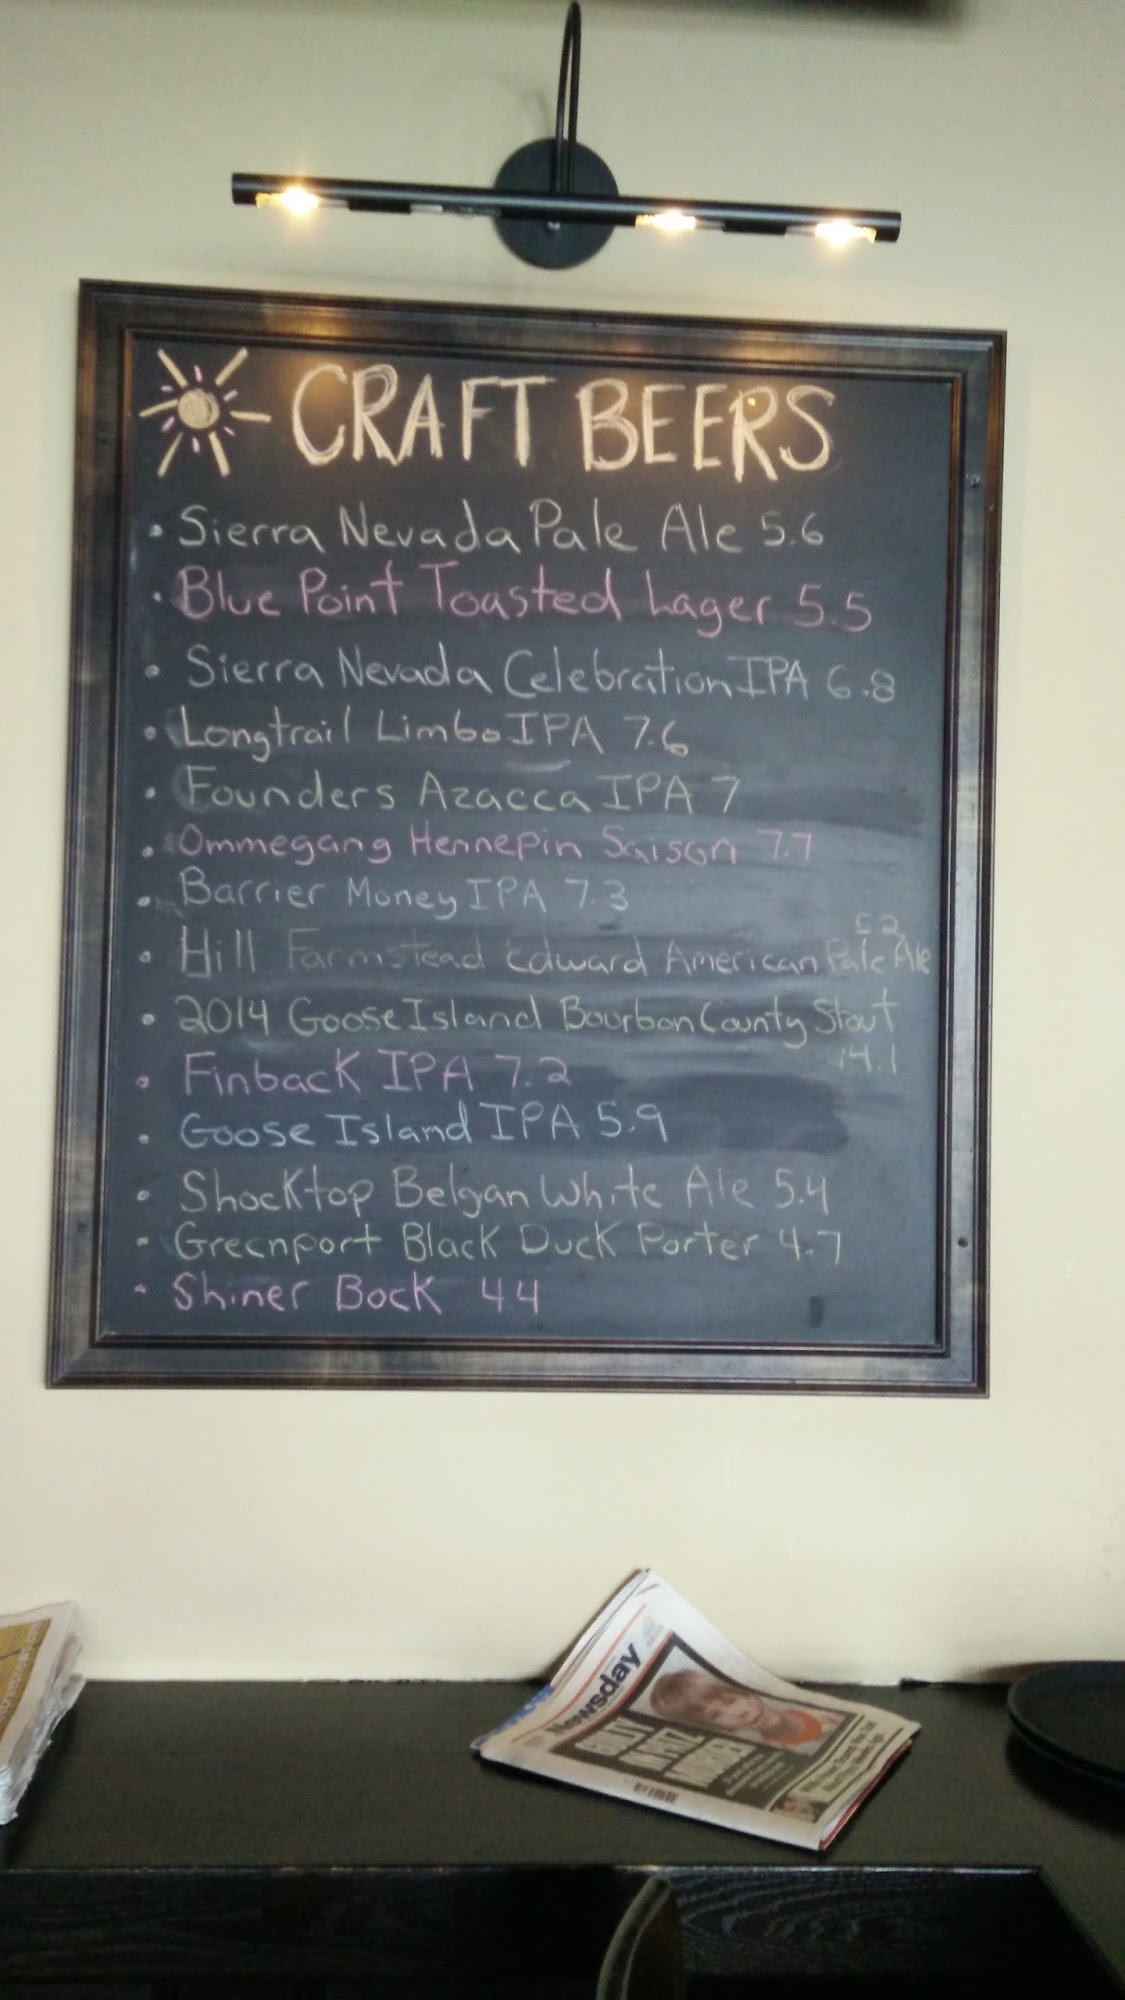 CRAFT BEERS
• Sierra Nevada Pale Ale 5.6
• Blue Point Toasted Lager 5.5
• Sierra Nevada Celebration IPA 6.8
• Longtrail Limbo IPA 7.6
• Founders Azacca IPA 7
• Ommegang Hennepin Saison 7.7
• Barrier Money IPA 7.3
• Hill Farmstead Edward American Pale Ale 5.2
• 2014 Goose Island Bourbon County Stout
14.1
• Finback IPA 7.2
• Goose Island IPA 5.9
• Shocktop Belgan White Ale 5.4
• Greenport Black Duck Porter 4.7
• Shiner Bock 4.4
Newsday
GUILTY
IN
MURDER